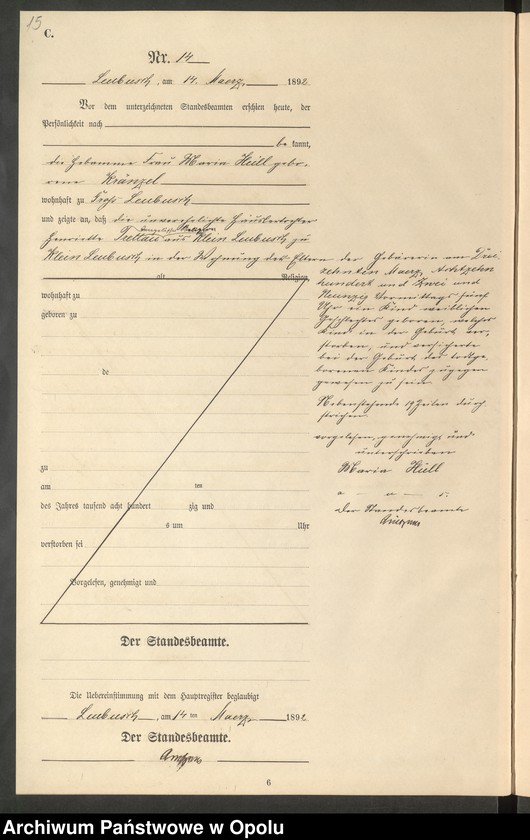 15
C.
Nr. 14
Leubusch, am 14. Maerz 1892
Vor dem unterzeichneten Standesbeamten erschien heute, der
Persönlichkeit nach
be kannt,
die Hebamme Frau Maria Hüll gebo-
rene Kränzel
wohnhaft zu Groß Leubusch
und zeigte an, daß die unverehelichte Häuslertochter
evangelischer Religion
Henriette aus Klein Leubusch zu
Klein Leubusch in der Wohnung der Eltern der Gebärerin am Drei
zehnten Maerz, Achtzehn
hundert und Zwei und
Neunzig Vormittags fünf
Uhr ein Kind weiblichen
Geschlechtes geboren, welches
Kind in der Geburt ver-
storben, und versicherte
bei der Geburt des todtge-
borenen Kindes zugegen
gewesen zu sein.
Nebenstehende 19 Zeilen durch-
strichen.
vorgelesen, genehmigt und
unterschrieben
Maria Hüll
Der Standesbeamte
alt Religion
wohnhaft zu
geboren zu
de
zu
am ten
des Jahres tausend acht hundert zig und
s um Uhr
verstorben sei
Vorgelesen, genehmigt und
Der Standesbeamte.
Die Uebereinstimmung mit dem Hauptregister beglaubigt
Leubusch, am 14 ten Maerz 1892
Der Standesbeamte.
6
Archiwum Państwowe w Opolu